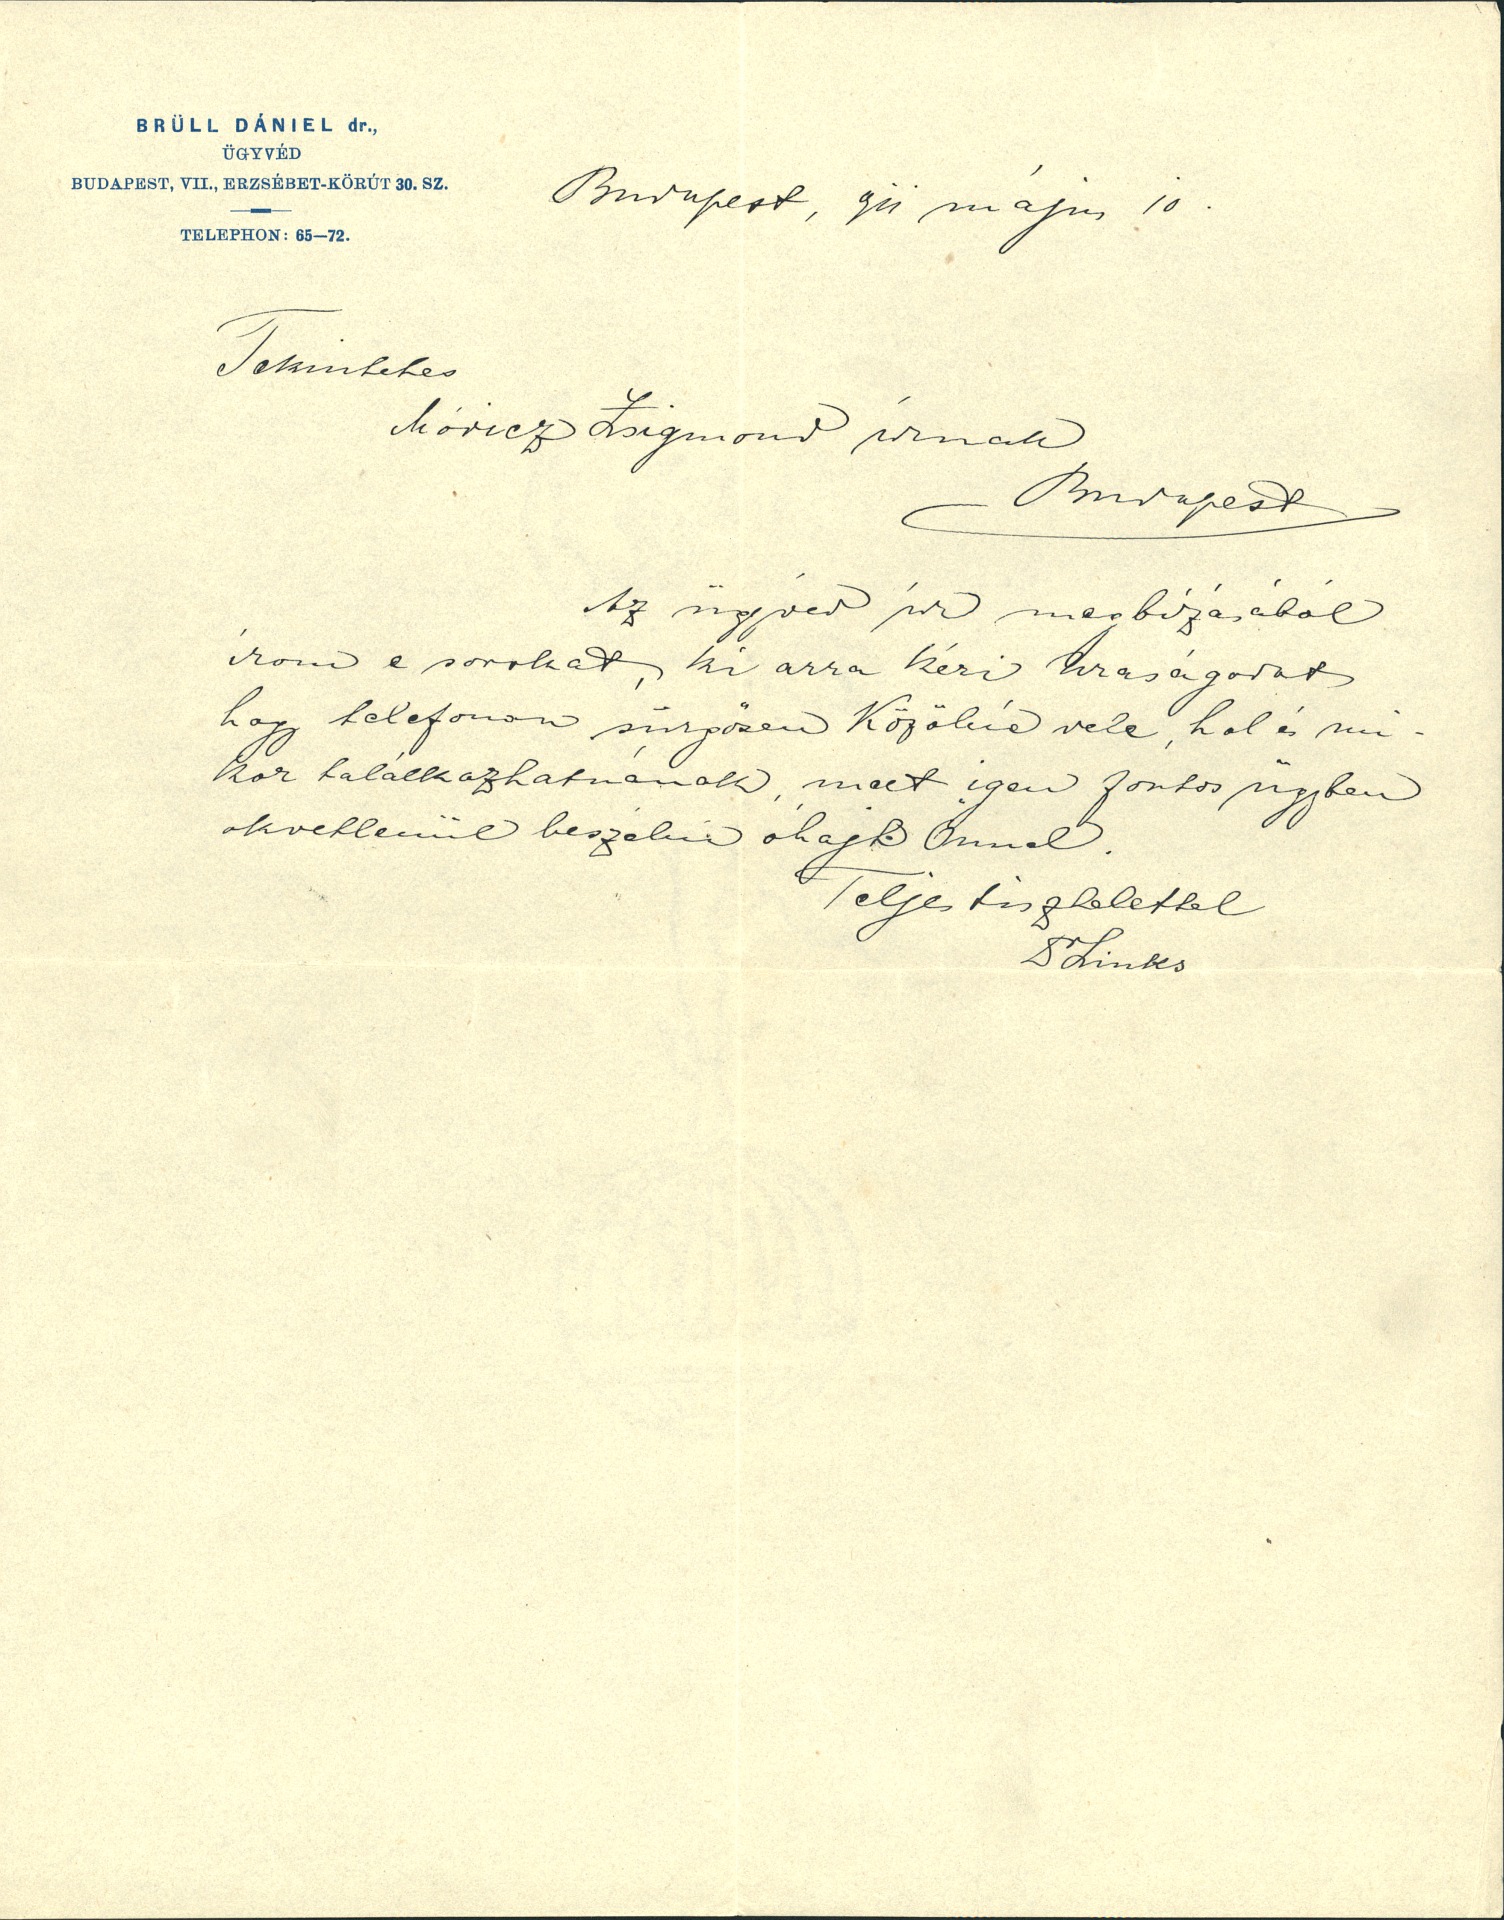 BRÜLL DÁNIEL dr.,
ÜGYVÉD
BUDAPEST, VII., ERZSÉBET-KÖRÚT 30. SZ.
TELEPHON: 65—72.
Budapest, 911 május 10.
Tekintetes
Móricz Zsigmond úrnak
Budapest
Az ügyvéd úr megbízásából
írom e sorokat, ki arra kéri Uraságodat
hogy telefonon sürgősen közölné vele, hol és mi-
kor találkozhatnának, mert igen fontos ügyben
okvetlenül beszélni óhajt Önnel.
Teljes tisztelettel
Dr Links